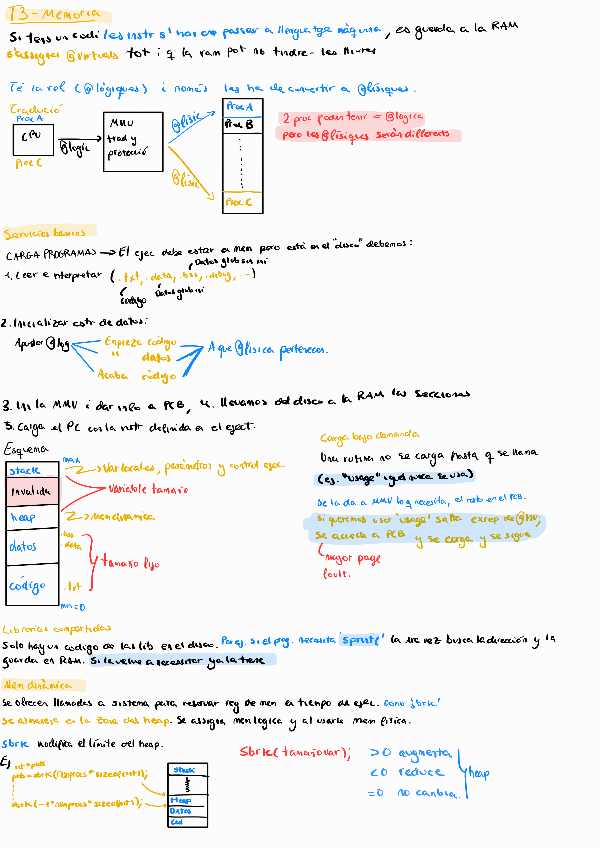 T3 - Memoria
Si tens un codi les instr s'han de passar a llenguatge màquina, es guarda a la RAM
s'assignen @virtuals tot i q la ram pot no tindre-les lliures
Té la rel (@lògiques) i només las ha de convertir a @físiques.
Traducció
Proc A
CPU
Proc C
@logic
MMU
trad y
protecció
@física
@física
Proc A
Proc B
Proc C
2 proc poden tenir = @logica
pero les @físiques seràn diferents
Servicios basicos
CARGA PROGRAMAS → El ejec debe estar a mem pero está en el "disco" debemos:
Datos glob sin ini
1. Leer e interpretar (.txt, .data, .bss, .debug, ...)
código
Datos glob ini
2. Inicializar estr de datos:
Apuntar @log
Empieza código
" datos
Acaba código
A que @física pertenecen.
3. Ini la MMU i dar info a PCB, 4. llevamos del disco a la RAM las secciones
5. Carga el PC con la instr definida a el eject.
Esquema
max
stack
invalida
heap
datos
código
.bss
.data
.txt
min=0
Var locales, parámetros y control ejec.
Variable tamaño
Mem dinamica
tamaño fijo
Carga bajo demanda
Una rutina no se carga hasta q se llama
(ej. "usage" igual nunca se usa)
Se la da a MMU lo q necesita, el resto en el PCB.
Si queremos usar 'usage' salta excep de @inv,
se acceda a PCB y se carga y se sigue
major page
fault.
Librerias compartidas
Solo hay un codigo de las lib en el disco. Por ej. si el prog. necesita 'sprintf' la 1re vez busca la dirección y la
guarda en RAM. Si la vuelve a necesitar ya la tiene
Mem dinàmica
Se ofrecen llamadas a sistema para reservar reg de mem en tiempo de ejec. como 'sbrk'
Se almacena en la zona del heap. Se assigna mem logica y al usarla mem física.
Sbrk modifica el límite del heap.
Ej
int *pids
pids = sbrk(numprocs * sizeof(int));
sbrk(-1*numprocs * sizeof(int));
stack
Heap
Datos
Cod
Sbrk(tamañovar);
>0 augmenta
<0 reduce
=0 no cambia.
heap